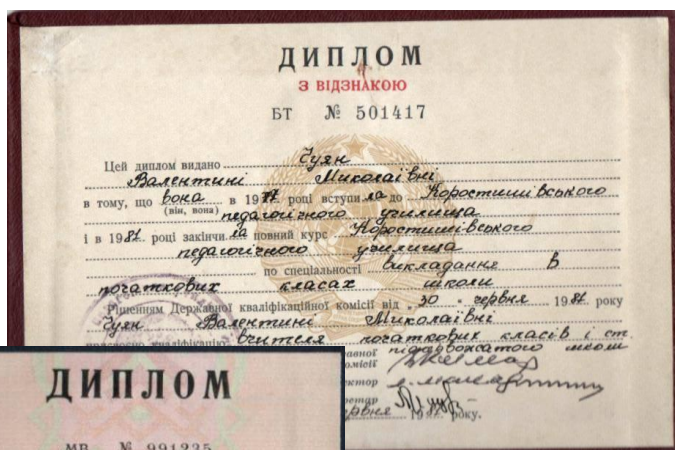 ДИПЛОМ
З ВІДЗНАКОЮ
БТ № 501417
Цей диплом видано Чуян
Валентині Миколаївні
в тому, що вона в 1977 році вступила до Коростишівського
(він, вона) педагогічного училища
і в 1981 році закінчила повний курс Коростишівського
педагогічного училища
по спеціальності викладання в
початкових класах школи
Рішенням Державної кваліфікаційної комісії від „30" червня 1981 року
Чуян Валентині Миколаївні
присвоєно кваліфікацію вчителя початкових класів і ст.
піонервожатого школи
року.
ДИПЛОМ
МВ № 991225